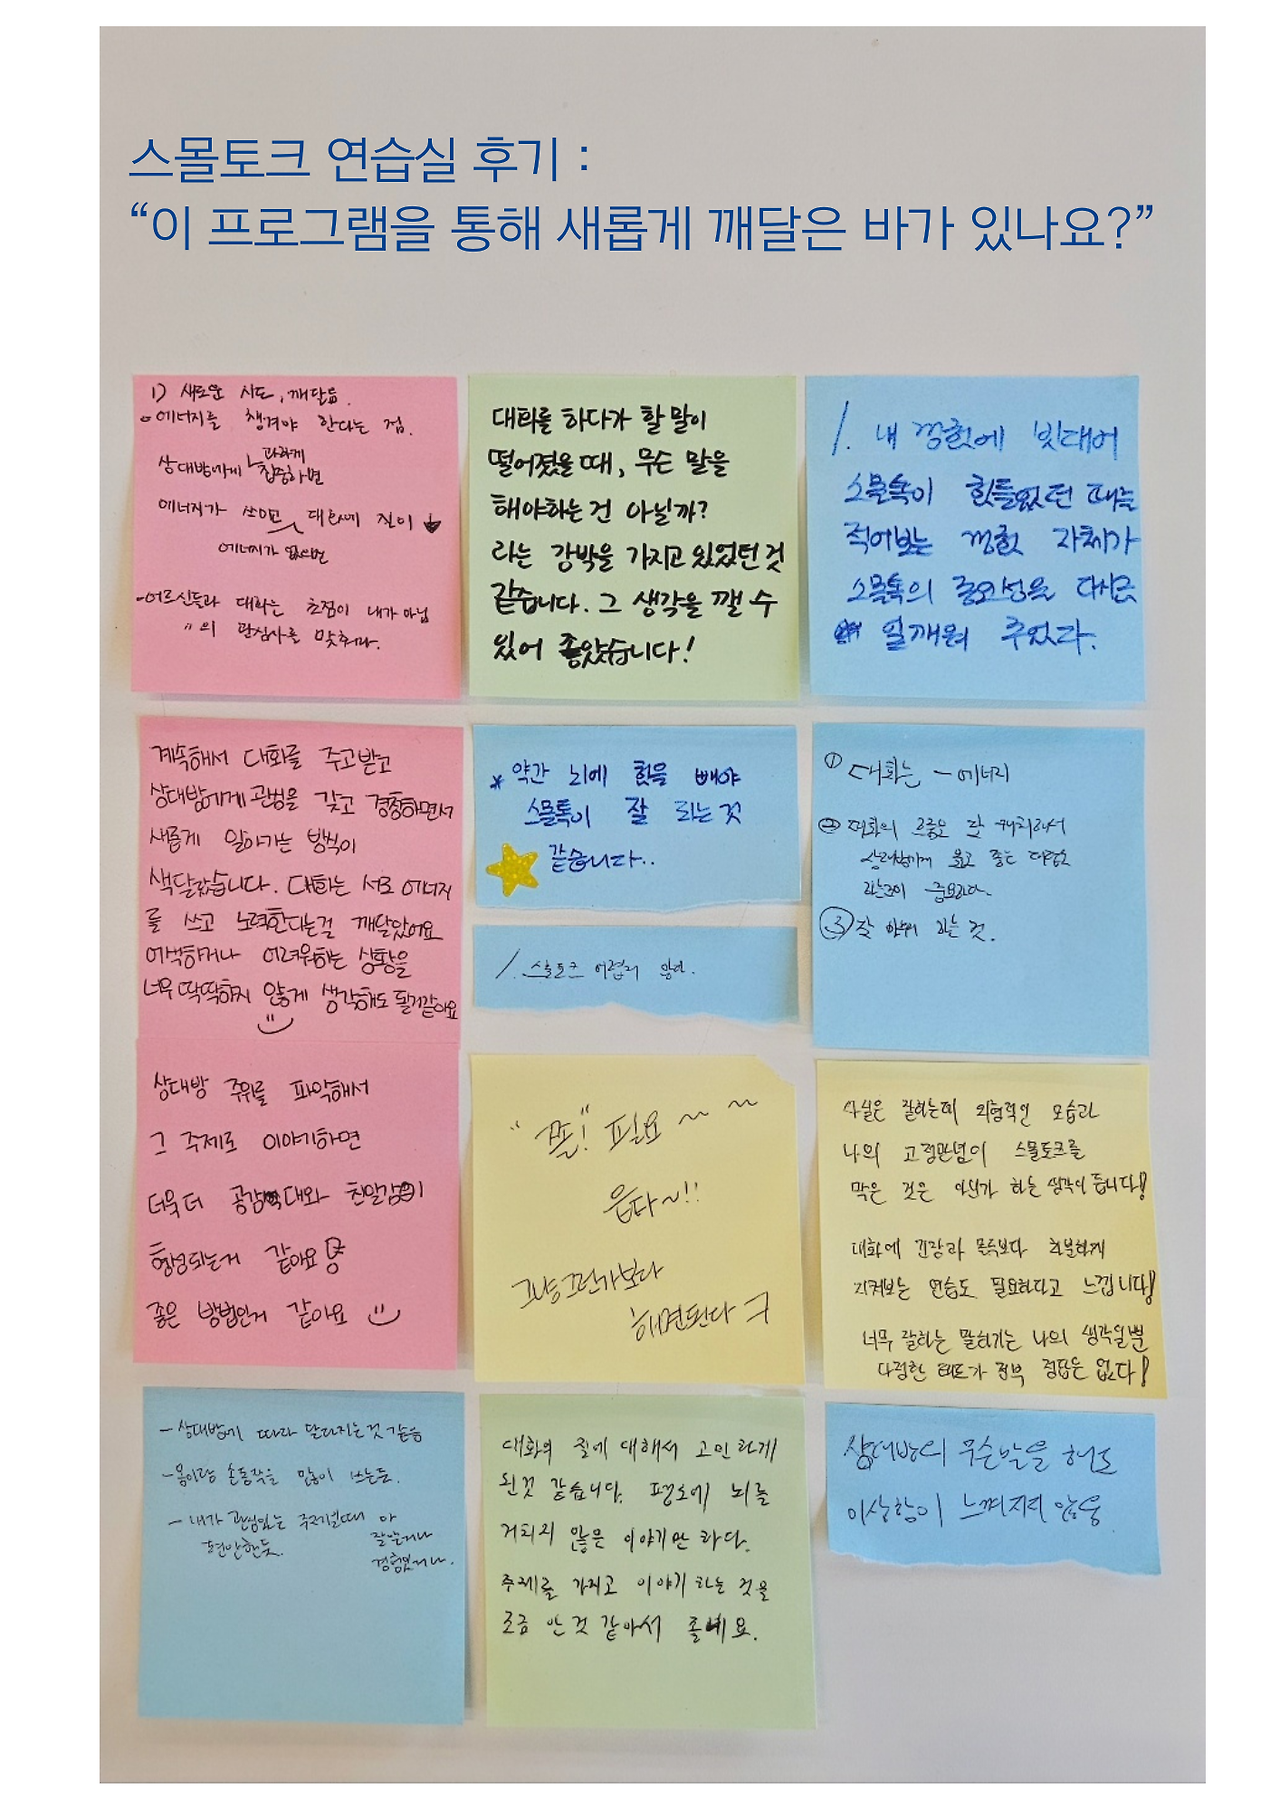 스몰토크 연습실 후기 :
“이 프로그램을 통해 새롭게 깨달은 바가 있나요?”
1) 새로운 시도, 깨달음.
에너지를 챙겨야 한다는 점.
상대방에게 과하게 집중하면
에너지가 쓰이고 대화에 질이 ↓
에너지가 없으면
-어르신들과 대화는 초점이 내가 아닌
〃의 관심사를 맞춰라.
대화를 하다가 할 말이
떨어졌을 때, 무슨 말을
해야하는 건 아닐까?
라는 강박을 가지고 있었던 것
같습니다. 그 생각을 깰 수
있어 좋았습니다!
/. 내 경험에 빗대어
스몰톡이 힘들었던 때를
적어보는 경험 자체가
스몰톡의 중요성을 다시금
일깨워 주었다.
계속해서 대화를 주고받고
상대방에게 관심을 갖고 경청하면서
새롭게 알아가는 방식이
색달랐습니다. 대화는 서로 에너지
를 쓰고 노력한다는걸 깨달았어요
어색하거나 어려워하는 상황을
너무 딱딱하지 않게 생각해도 될거같아요
* 약간 뇌에 힘을 빼야
스몰톡이 잘 되는 것
같습니다..
/. 스몰토크 어렵지 않다.
① 대화는 - 에너지
② 대화의 흐름을 잘 캐치해서
상대방에게 묻고 좋은 대답을
하는것이 중요하다.
③ 잘 하는 것.
상대방 주위를 파악해서
그 주제로 이야기하면
더욱더 공감대와 친밀감이
형성되는거 같아요
좋은 방법인거 같아요
“쫌!” 필요~~
읏다~!!
그냥 그런가보다
해면된다
사실은 잘하는데 외형적인 모습과
나의 고정관념이 스몰토크를
막은 것은 아닌가 하는 생각이 듭니다!
대화에 긴장과 몰두보다 차분하게
지켜보는 연습도 필요하다고 느낍니다!
너무 잘하는 말하기는 나의 생각일뿐
다정한 태도가 전부 정답은 없다!
- 상대방에 따라 달라지는것 같음
- 몸이랑 손동작을 많이 쓰는듯.
- 내가 관심있는 주제일때 아
편안한듯. 잘알거나
경험있거나.
대화의 질에 대해서 고민하게
된것 같습니다. 평소에 뇌를
거되지 않은 이야기만 하다.
주제를 가지고 이야기 하는 것을
조금 안 것 같아서 좋네요.
상대방의 무슨말을 해도
이상함이 느껴지지 않음